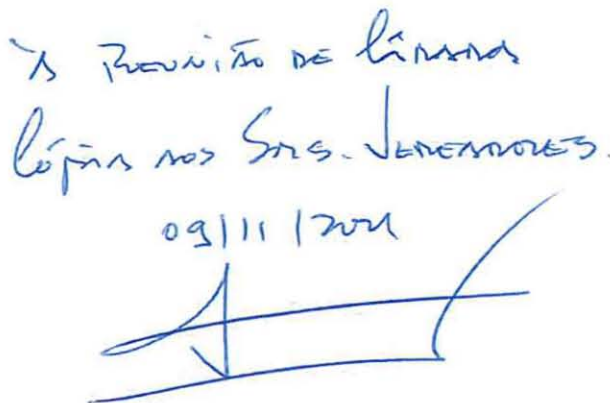 À Reunião de Câmara
Cópia aos Srs. Vereadores.
09/11/2021